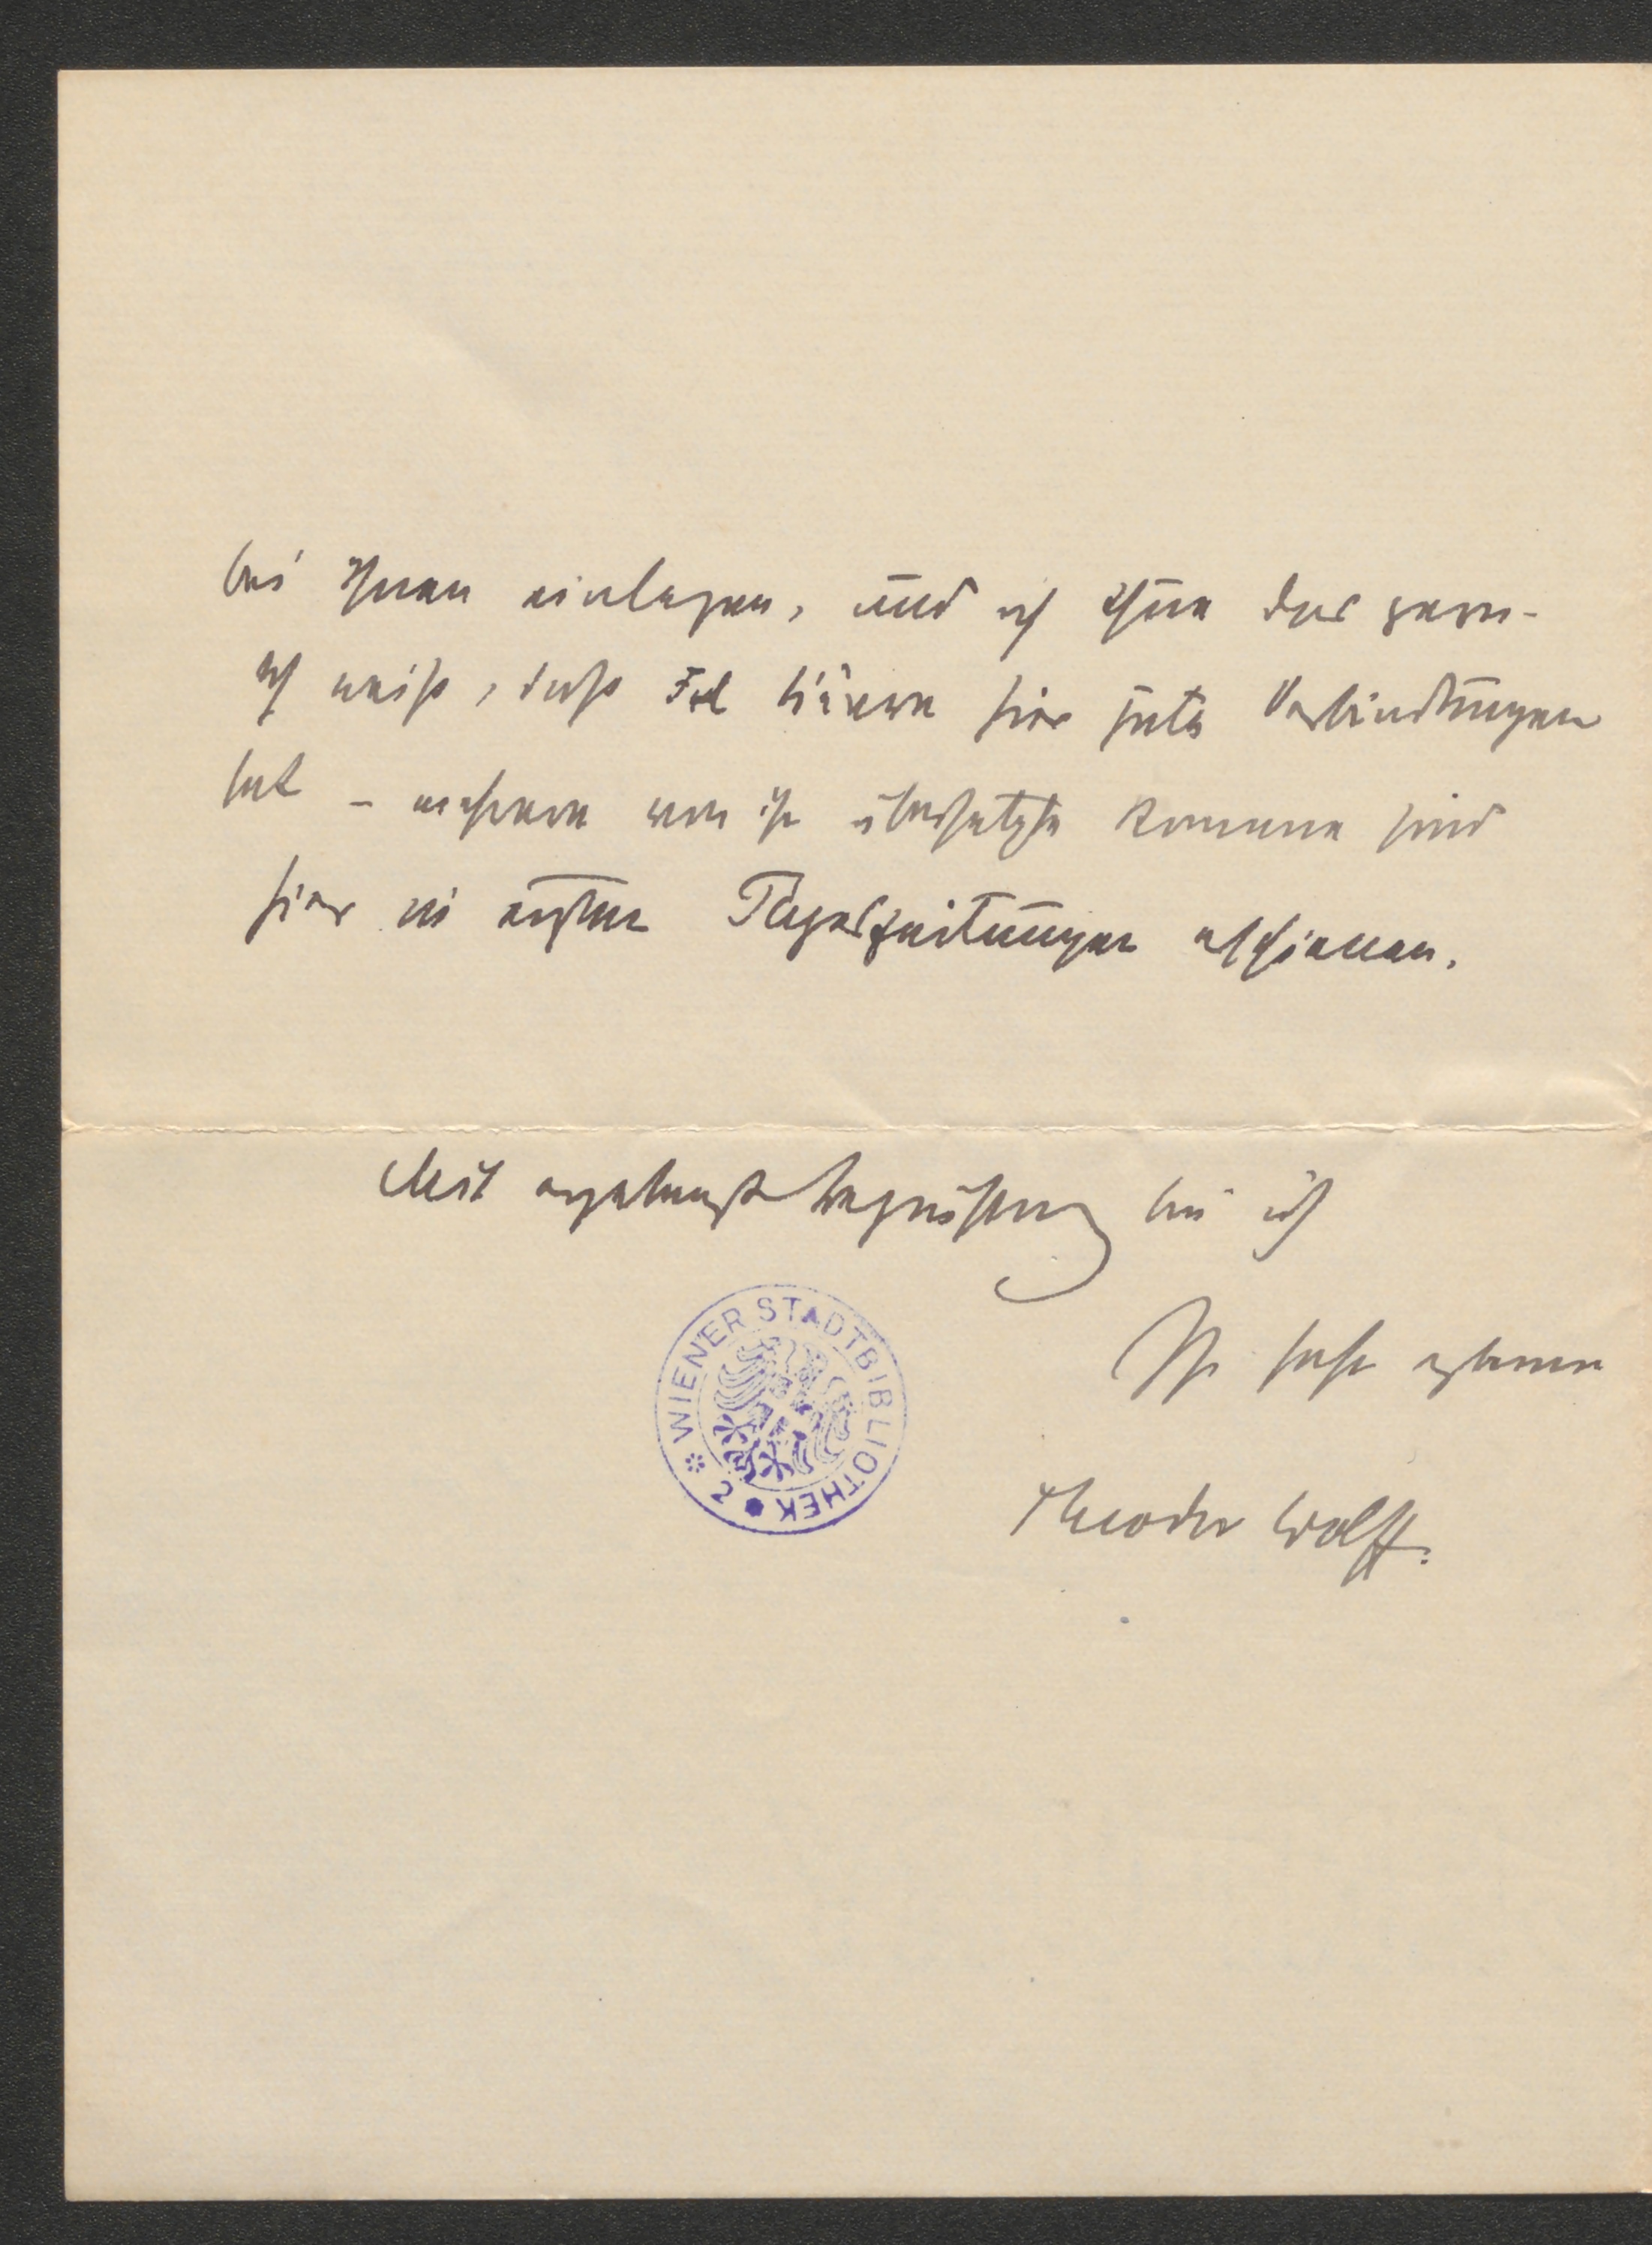 bei Ihnen einlegen, und ich thue das gern.
Ich weiß, daß Frl hier gute Verbindungen
hat – mehrere von ihr übersetzte Romane sind
hier in ersten Tageszeitungen erschienen.
Mit ergebenster Begrüßung bin ich
Ihr sehr ergebener
Theodor Wolff.
* WIENER STADTBIBLIOTHEK • 2